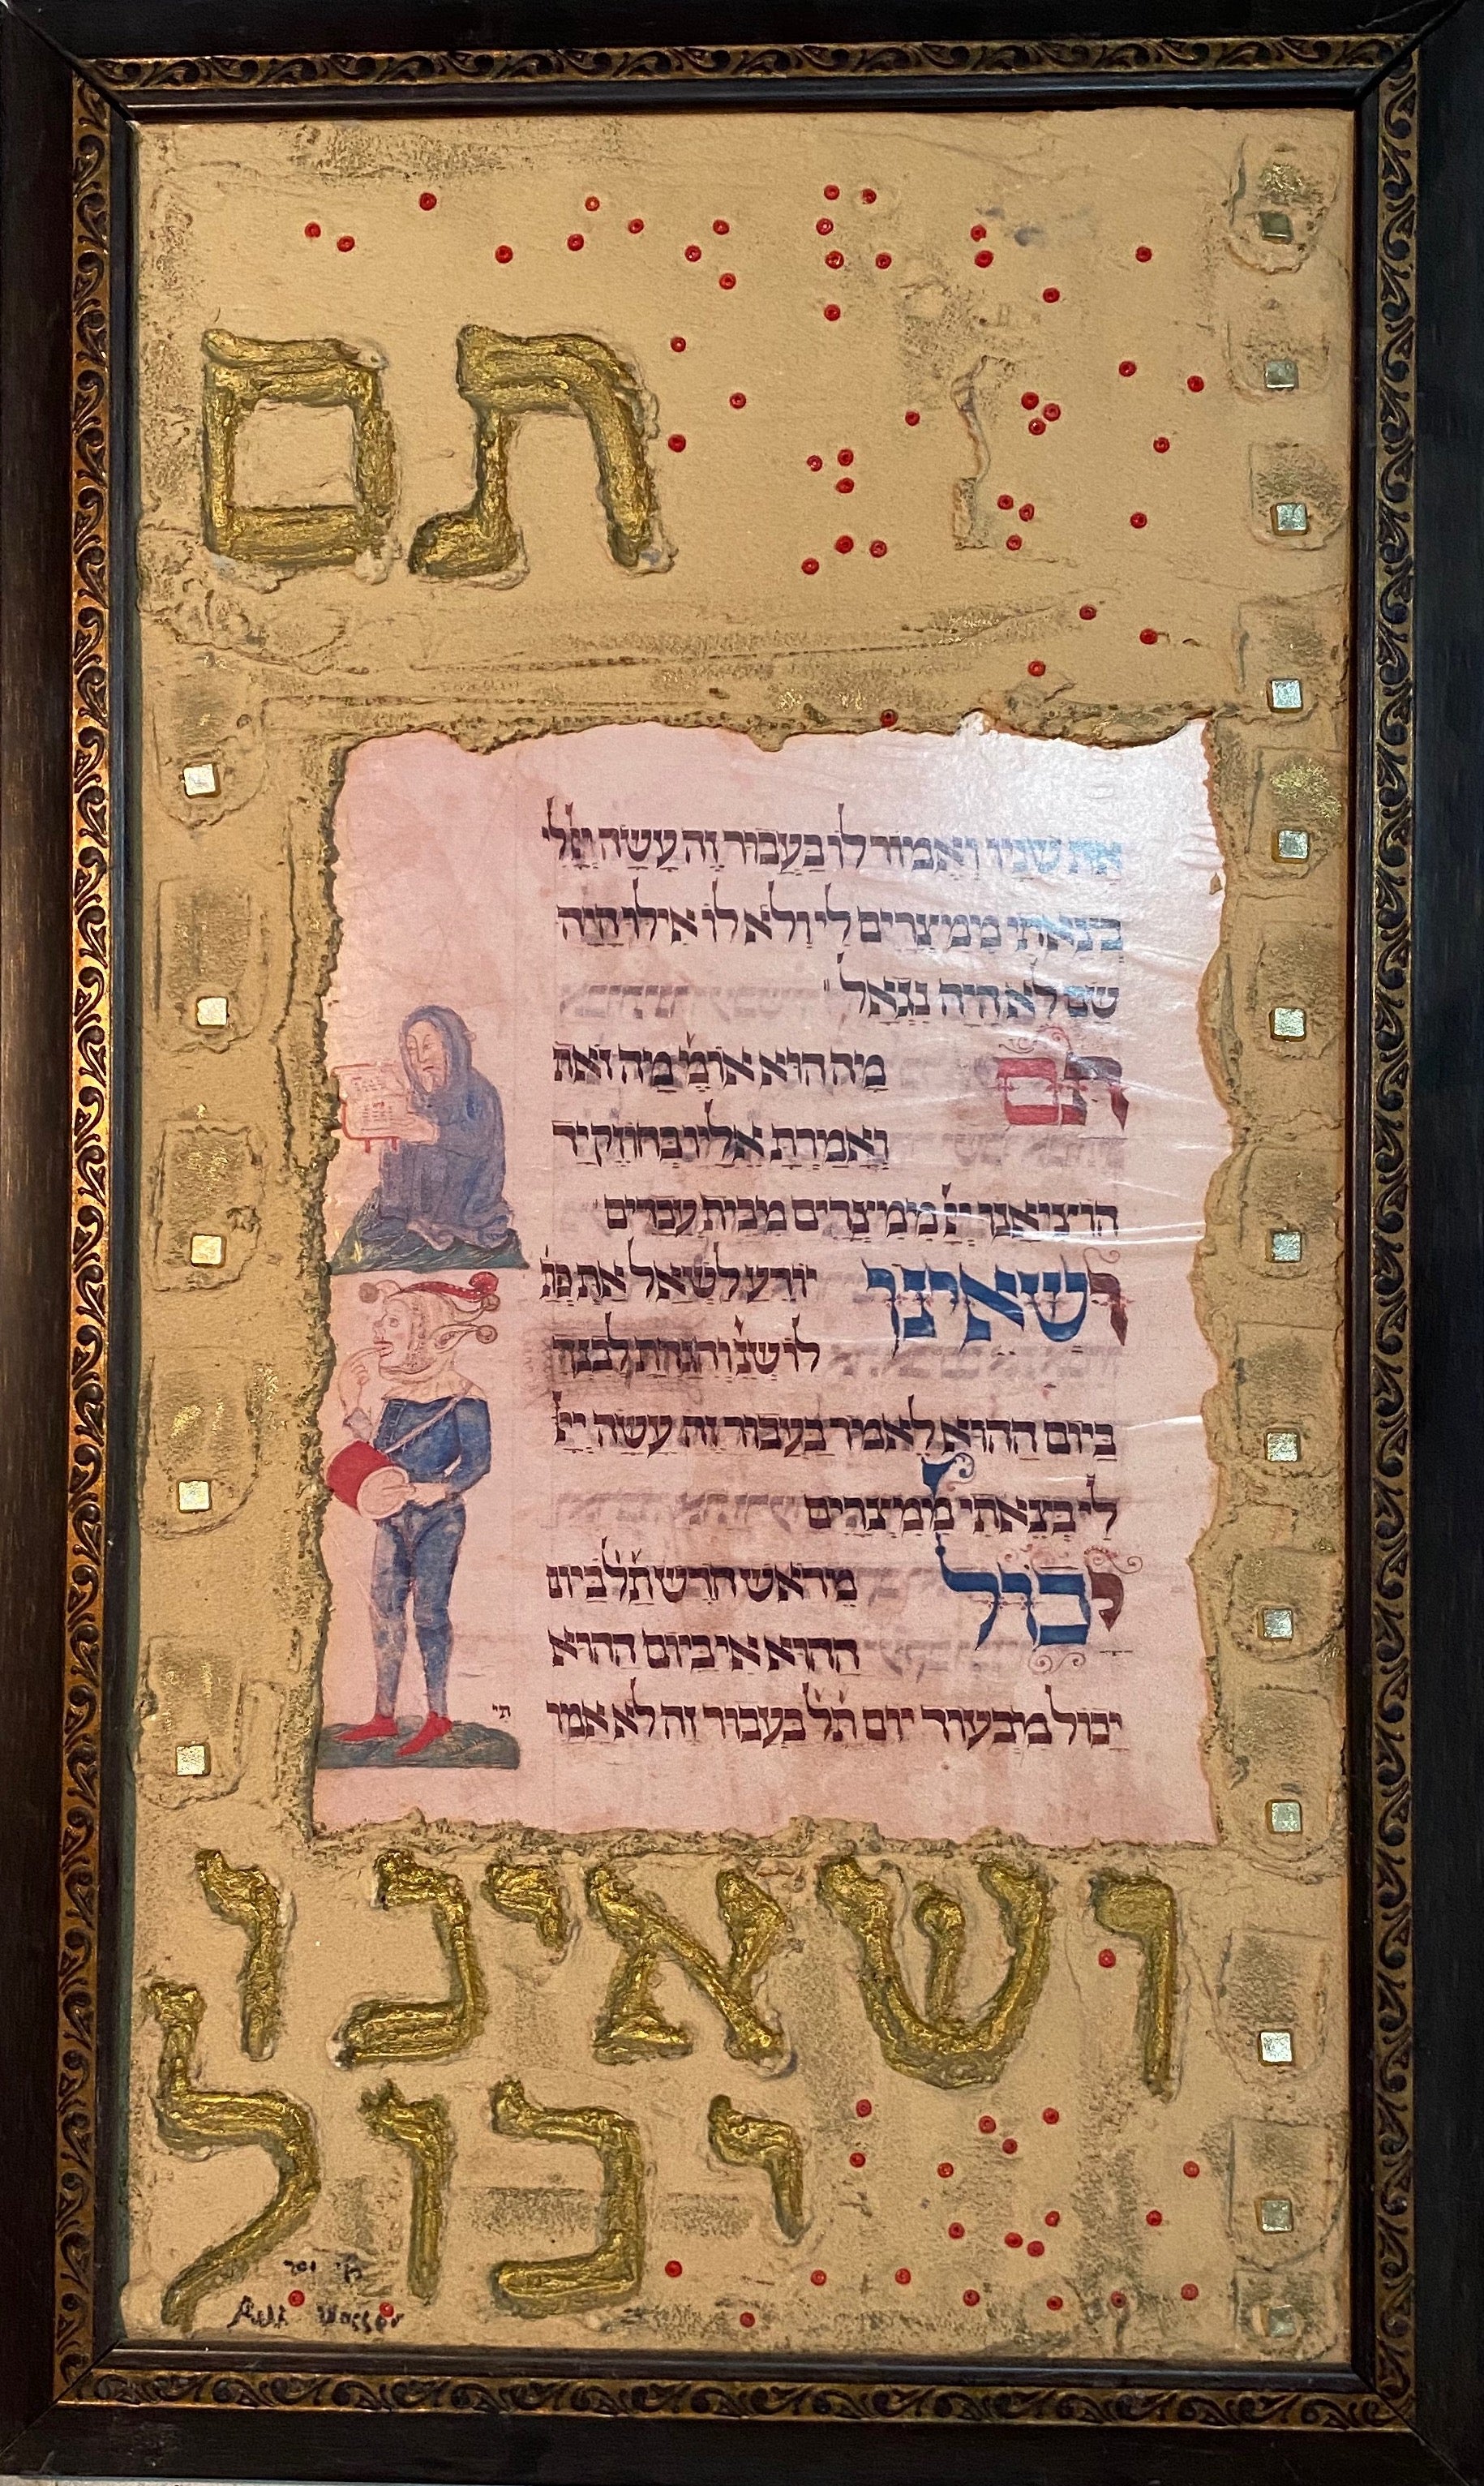 תם
את שניו ואמור לו בעבור זה עשה יי לי
בצאתי ממצרים לי ולא לו אילו היה
שם לא היה נגאל
תם מה הוא אומ' מה זאת
ואמרת אליו בחוזק יד
הוציאנו יי ממצרים מבית עבדים
ושאינו יודע לשאל את פת
לו שנ' והגדת לבנך
ביום ההוא לאמר בעבור זה עשה יי
לי בצאתי ממצרים
יכול מראש חדש ת"ל ביום
ההוא אי ביום ההוא
יכול מבעוד יום ת"ל בעבור זה לא אמ'
תי
ושאינו
יכול